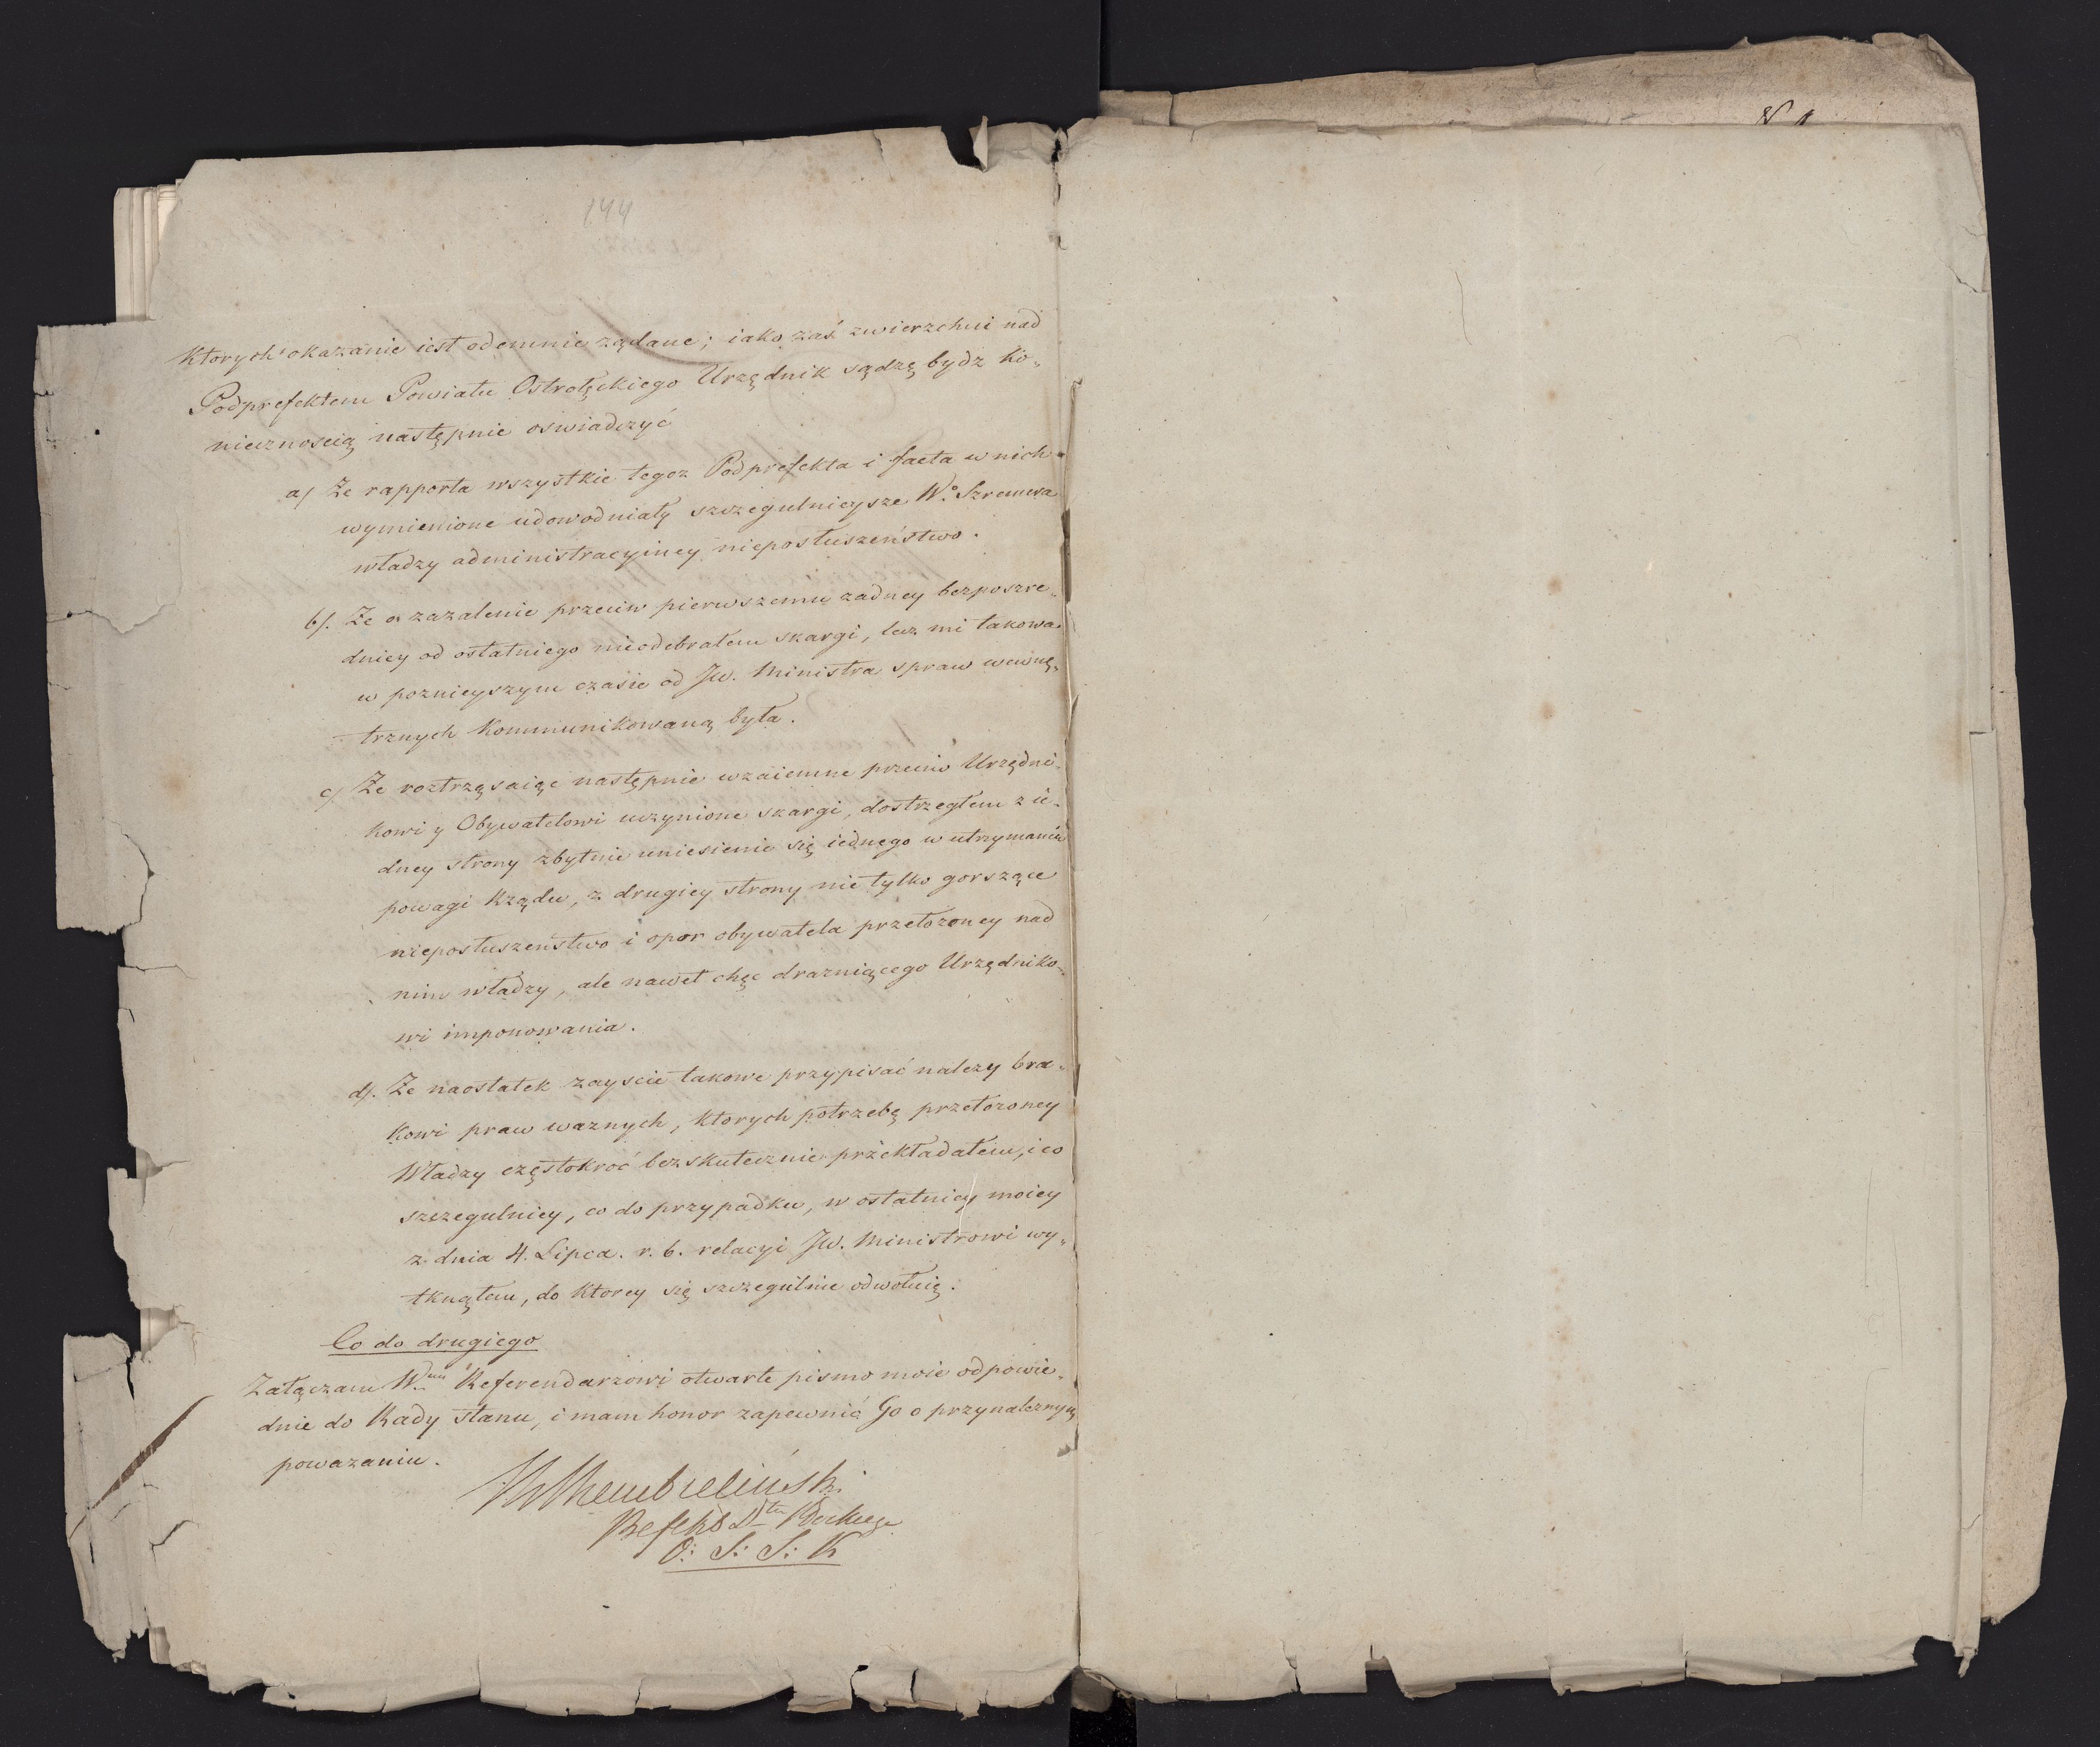 144
których okazanie iest odemnie żądane; iako zaś zwierzchni nad
Podprefektem Powiatu Ostrołęckiego Urzędnik sądzę bydz ko„
niecznoscią następnie oswiadczyć
a/ Ze rapporta wszystkie tegoz Podprefekta i facta w nich
wymienione udowodniały szczegulnieysze W.° Szremera
władzy administracyiney nieposłuszeństwo.
b/. Ze o zazalenie przeciw pierwszemu zadney bezposzre„
dniey od ostatniego nieodebrałem skargi, lecz mi takowa
w poznieyszym czasie od Jw. Ministra spraw wewnę„
trznych kommunikowaną była.
c/ Ze roztrzęsaiąc następnie wzaiemne przeciw Urzędni„
kowi y Obywatelowi uczynione skargi, dostrzegłem z ie„
dney strony zbytnie uniesienie się iednego w utrzymaniu
powagi Rządu, z drugiey strony nie tylko gorszące
nieposłuszeństwo i opor obywatela przełozoney nad
nim władzy, ale nawet chęc drazniącego Urzędniko„
wi imponowania.
d/. Ze naostatek zayscie takowe przypisać nalezy bra„
kowi praw waznych, ktorych potrzebę przełozoney
Władzy częstokroć bezskutecznie przekładałem, i co
szczegulniey, co do przypadku, w ostatniey moiey
z dnia 4. Lipca. r. b. relacyi Jw. Ministrowi wy„
tknąłem, do ktorey się szczegulnie odwołuię.
Co do drugiego
Załączam W.mu Referendarzowi otwarte pismo moie odpowie„
dnie do Rady Stanu, i mam honor zapewnić Go o przynaleznym
powazaniu.
Rembieliński
Prefekt D.tu Płockiego
O: S: S: K